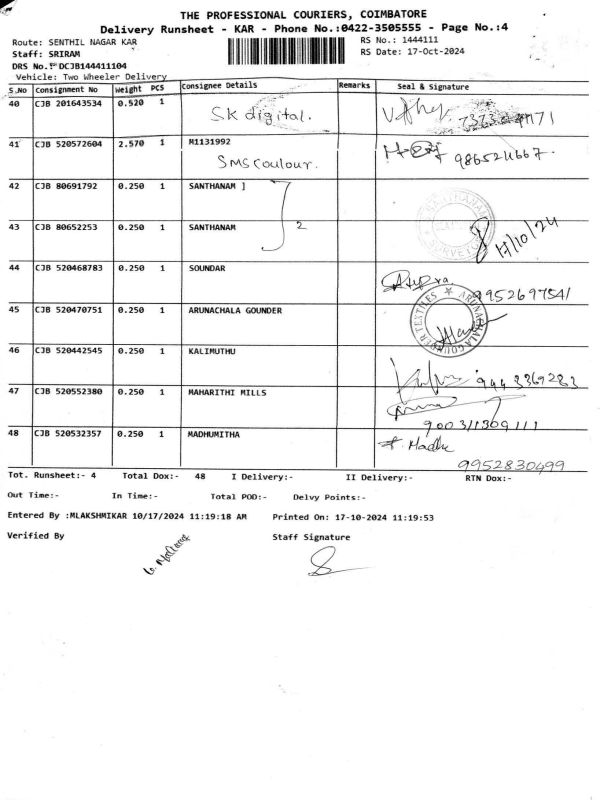 THE PROFESSIONAL COURIERS, COIMBATORE
Delivery Runsheet - KAR - Phone No.:0422-3505555 - Page No.:4
Route: SENTHIL NAGAR KAR
RS No.: 1444111
Staff: SRIRAM
RS Date: 17-Oct-2024
DRS No.: DCJB144411104
Vehicle: Two Wheeler Delivery
S.No Consignment No Weight PCS Consignee Details Remarks Seal & Signature
40 CJB 201643534 0.520 1
SK digital.
41 CJB 520572604 2.570 1 M1131992
SMS Coulour.
42 CJB 80691792 0.250 1 SANTHANAM ]
43 CJB 80652253 0.250 1 SANTHANAM
2
SANTHANAM
SURVEYOR
17/10/24
44 CJB 520468783 0.250 1 SOUNDAR
9952697541
45 CJB 520470751 0.250 1 ARUNACHALA GOUNDER
ARUNACHALA GOUNDER TEXTILES
46 CJB 520442545 0.250 1 KALIMUTHU
9443369283
47 CJB 520552380 0.250 1 MAHARITHI MILLS
48 CJB 520532357 0.250 1 MADHUMITHA
Madhu
9952830499
Tot. Runsheet:- 4 Total Dox:- 48 I Delivery:- II Delivery:- RTN Dox:-
Out Time:- In Time:- Total POD:- Delvy Points:-
Entered By :MLAKSHMIKAR 10/17/2024 11:19:18 AM Printed On: 17-10-2024 11:19:53
Verified By Staff Signature